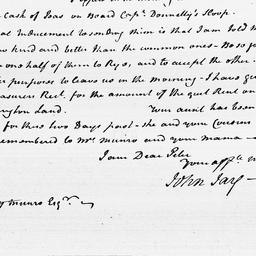 Cask of Peas on Board Capt. Donnelly's Sloop.
al Inducement to sending them is that I am told
new kind and better than the common ones - Be so go
one half of them to Rye, and to accept the other.
purposes to leave us in the morning - I have
asurers Rect. for the amount of the quit Rent on
ington Land. Your aunt has been
for these two Days past - she and your Cousins
remembered to Mrs. Munro and your mama -
I am Dear Peter
your affte.
John Jay -
Munro Esqr.